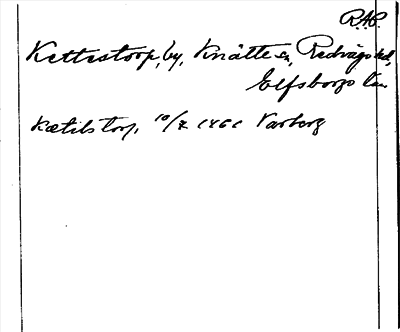 R.A.P.
Kettestorp, by, Knätte sn, Redvägs hd,
Elfsborgs län.
Kætilstorp, 10/7 1461 Varberg